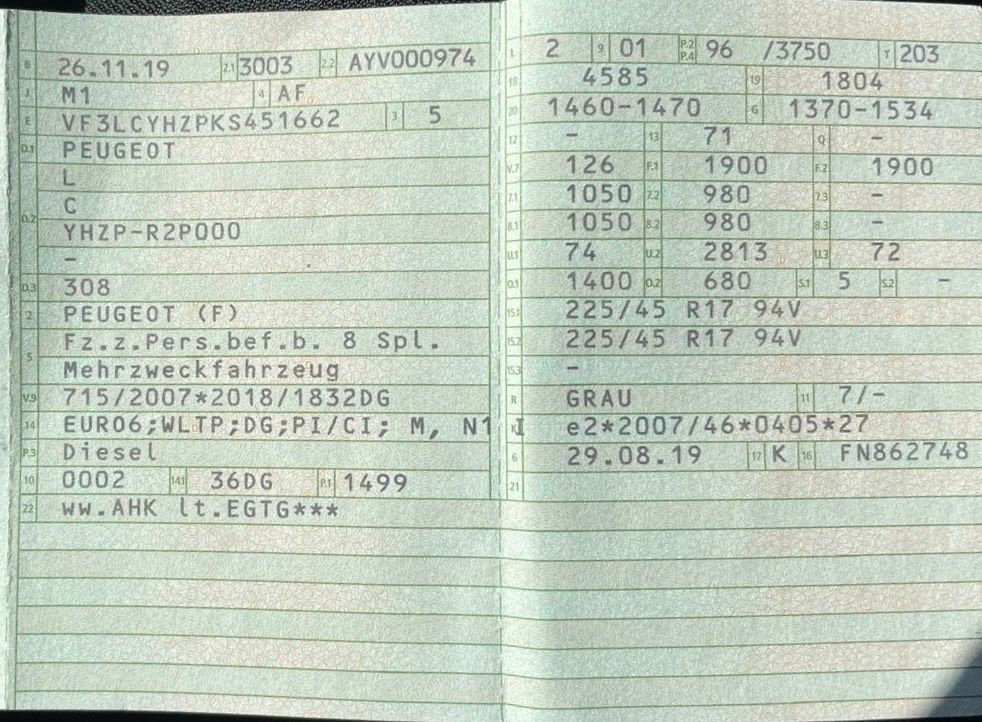 B 26.11.19 2.1 3003 2.2 AYV000974
J M1 4 AF
E VF3LCYHZPKS451662 3 5
D.1 PEUGEOT
L
D.2 C
YHZP-R2P000
-
D.3 308
2 PEUGEOT (F)
5 Fz.z.Pers.bef.b. 8 Spl.
Mehrzweckfahrzeug
V.9 715/2007*2018/1832DG
14 EURO6;WLTP;DG;PI/CI; M, N1 I
P.3 Diesel
10 0002 14.1 36DG P.1 1499
22 ww.AHK lt.EGTG***
L 2 9 01 P.2 P.4 96 /3750 T 203
18 4585 19 1804
20 1460-1470 G 1370-1534
12 - 13 71 Q -
V.7 126 F.1 1900 F.2 1900
7.1 1050 7.2 980 7.3 -
8.1 1050 8.2 980 8.3 -
U.1 74 U.2 2813 U.3 72
O.1 1400 O.2 680 S.1 5 S.2 -
15.1 225/45 R17 94V
15.2 225/45 R17 94V
15.3 -
R GRAU 11 7/-
K e2*2007/46*0405*27
6 29.08.19 17 K 16 FN862748
21